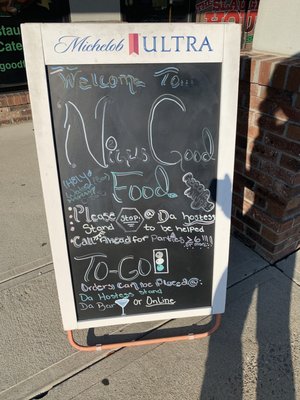 Michelob ULTRA
Welcome To...
Nick's Good
Food
Please STOP @ Da hostess
Stand to be helped
Call Ahead for Parties ≥ 6!!!!
To-GO
Orders Can be Placed @:
Da Hostess Stand
Da Bar or Online